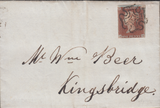 Mr Wm Beer
Kingsbridge.